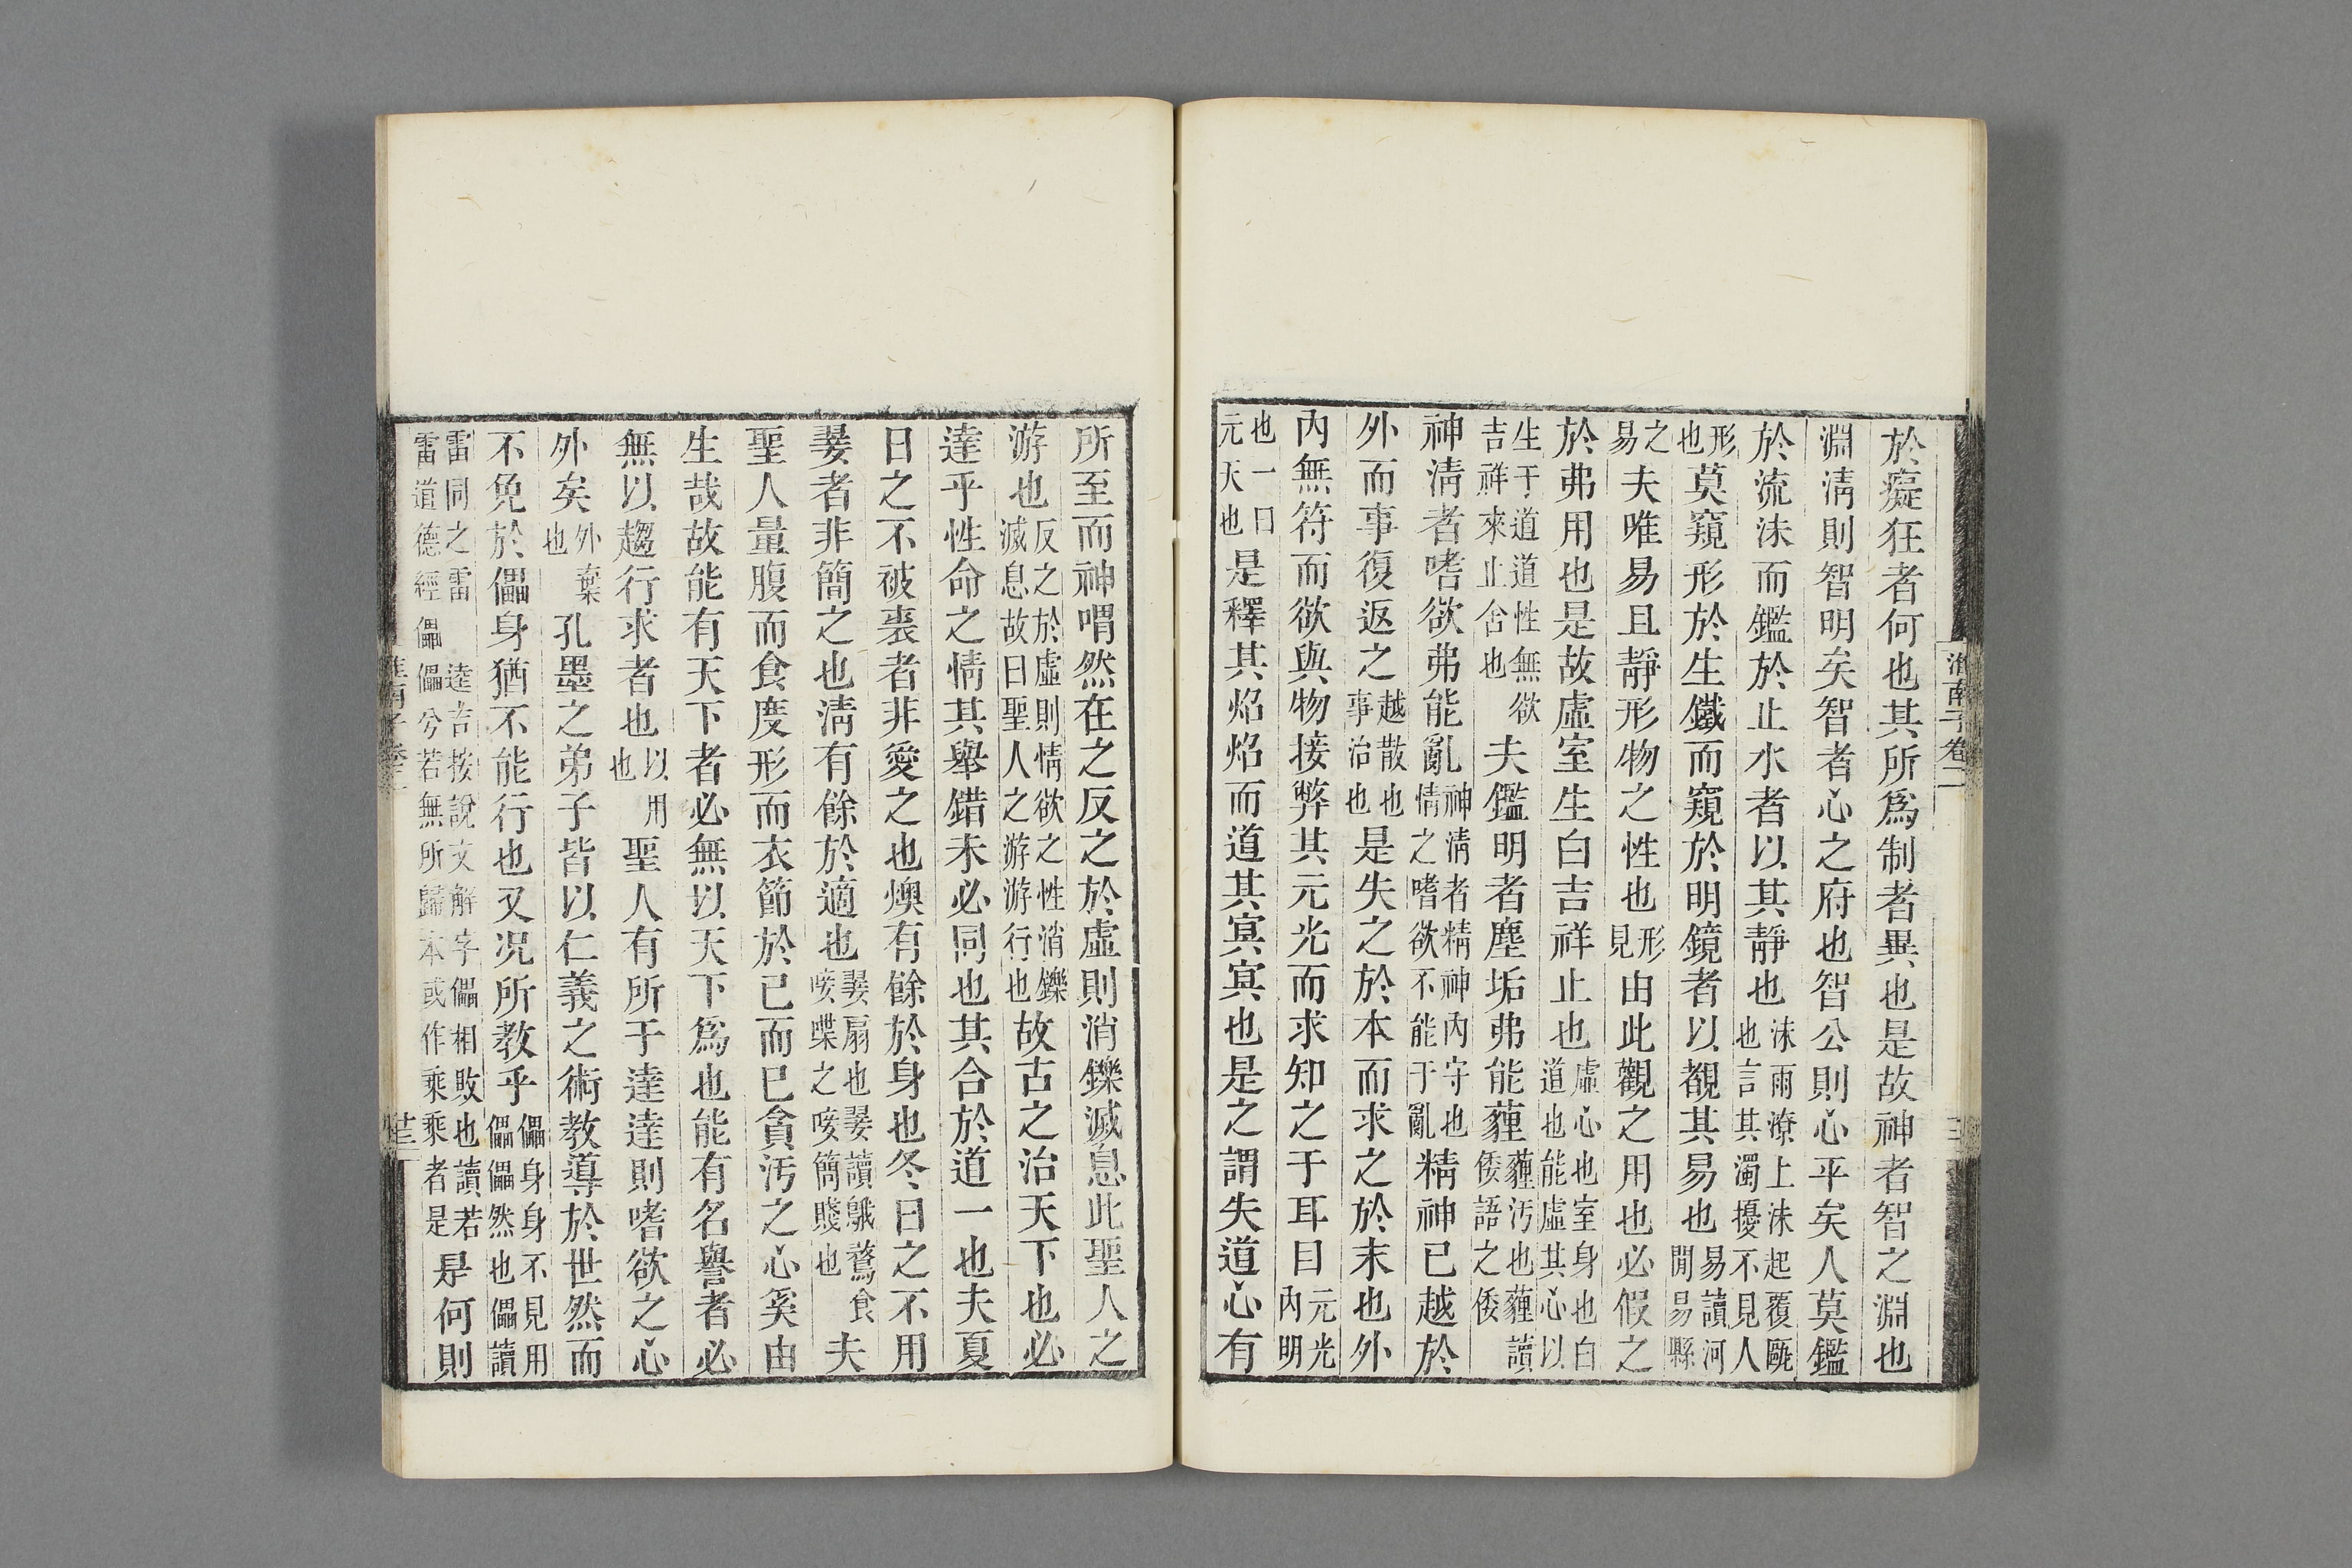 淮南子卷二
於癡狂者何也其所爲制者異也是故神者智之淵也
淵淸則智明矣智者心之府也智公則心平矣人莫鑑
於流沬而鑑於止水者以其靜也沬雨潦上沬起覆甌也言其濁擾不見人
形也莫窺形於生鐵而窺於明鏡者以覩其易也易讀河閒易縣
之易夫唯易且靜形物之性也形見由此觀之用也必假之
於弗用也是故虛室生白吉祥止也虛心也室身也白道也能虛其心以
生于道道性無欲吉祥來止舍也夫鑑明者塵垢弗能薶薶汚也薶讀倭語之倭
神淸者嗜欲弗能亂神淸者精神內守也情之嗜欲不能于亂精神已越於
外而事復返之越散也事治也是失之於本而求之於末也外
內無符而欲與物接弊其元光而求知之于耳目元光內明
也一曰元天也是釋其炤炤而道其冥冥也是之謂失道心有
所至而神喟然在之反之於虛則消鑠滅息此聖人之
游也反之於虛則情欲之性消鑠滅息故曰聖人之游游行也故古之治天下也必
達乎性命之情其舉錯未必同也其合於道一也夫夏
日之不被裘者非愛之也燠有餘於身也冬日之不用
翣者非簡之也淸有餘於適也翣扇也翣讀鵝鶩食唼喋之唼簡賤也夫
聖人量腹而食度形而衣節於己而已貪汚之心奚由
生哉故能有天下者必無以天下爲也能有名譽者必
無以趨行求者也以用也聖人有所于達達則嗜欲之心
外矣外棄也孔墨之弟子皆以仁義之術教導於世然而
不免於儡身猶不能行也又況所教乎儡身身不見用儡儡然也儡讀
雷同之雷 逵吉按說文解字儡相敗也讀若雷道德經儡儡兮若無所歸本或作乘乘者是是何則